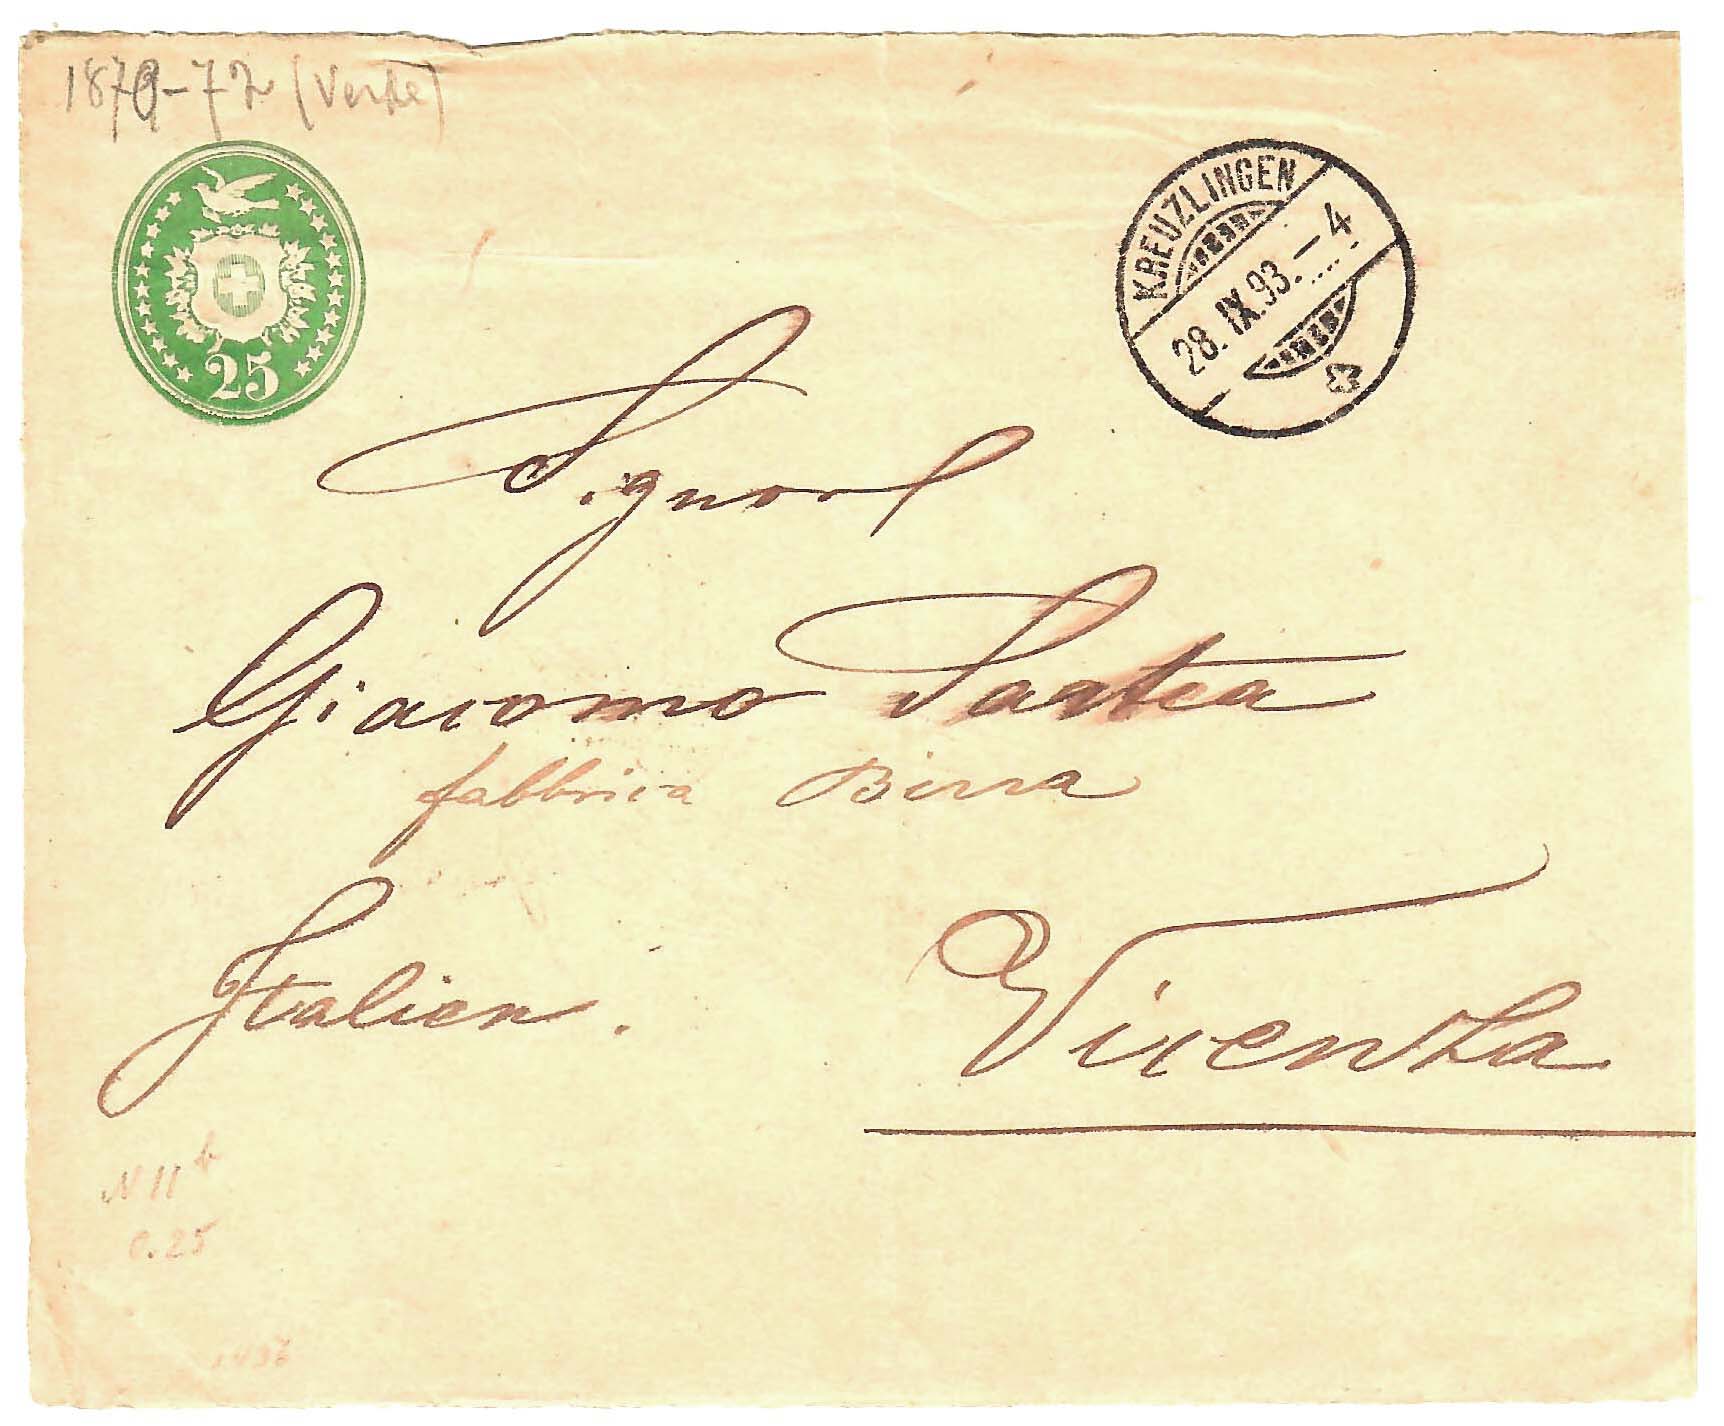 1870-72 (Verde)
25
KREUZLINGEN
28. IX. 93. – 4
Signor
Giacomo Sartea
fabbrica Birra
Italien.
Vicenza
N 11 b
C. 25